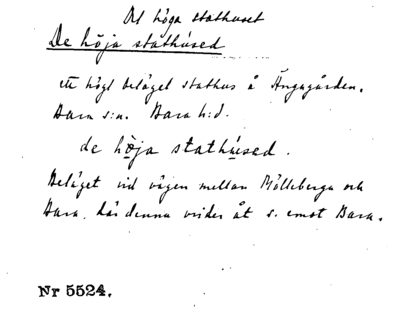 Det höga stathuset
De höja stathúsed
ett högt beläget stathus å Ängagården.
Bara s:n. Bara h:d.
de höja stathúsed.
Beläget vid vägen mellan Mölleberga och
Bara, där denna vrider åt s. emot Bara.
Nr 5524.